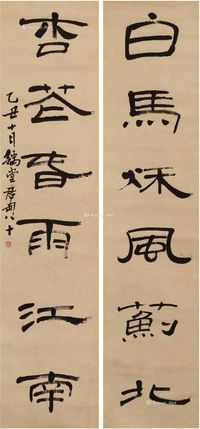 白馬秋風薊北
杏花春雨江南
乙丑十月堂八十